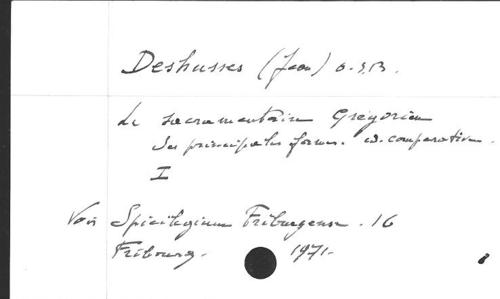 Deshusses (Jean) o.s.B.
Le sacramentaire Grégorien
Ses principales formes. éd. comparative.
I
Voir Spicilegium Friburgense. 16
Fribourg. 1971.